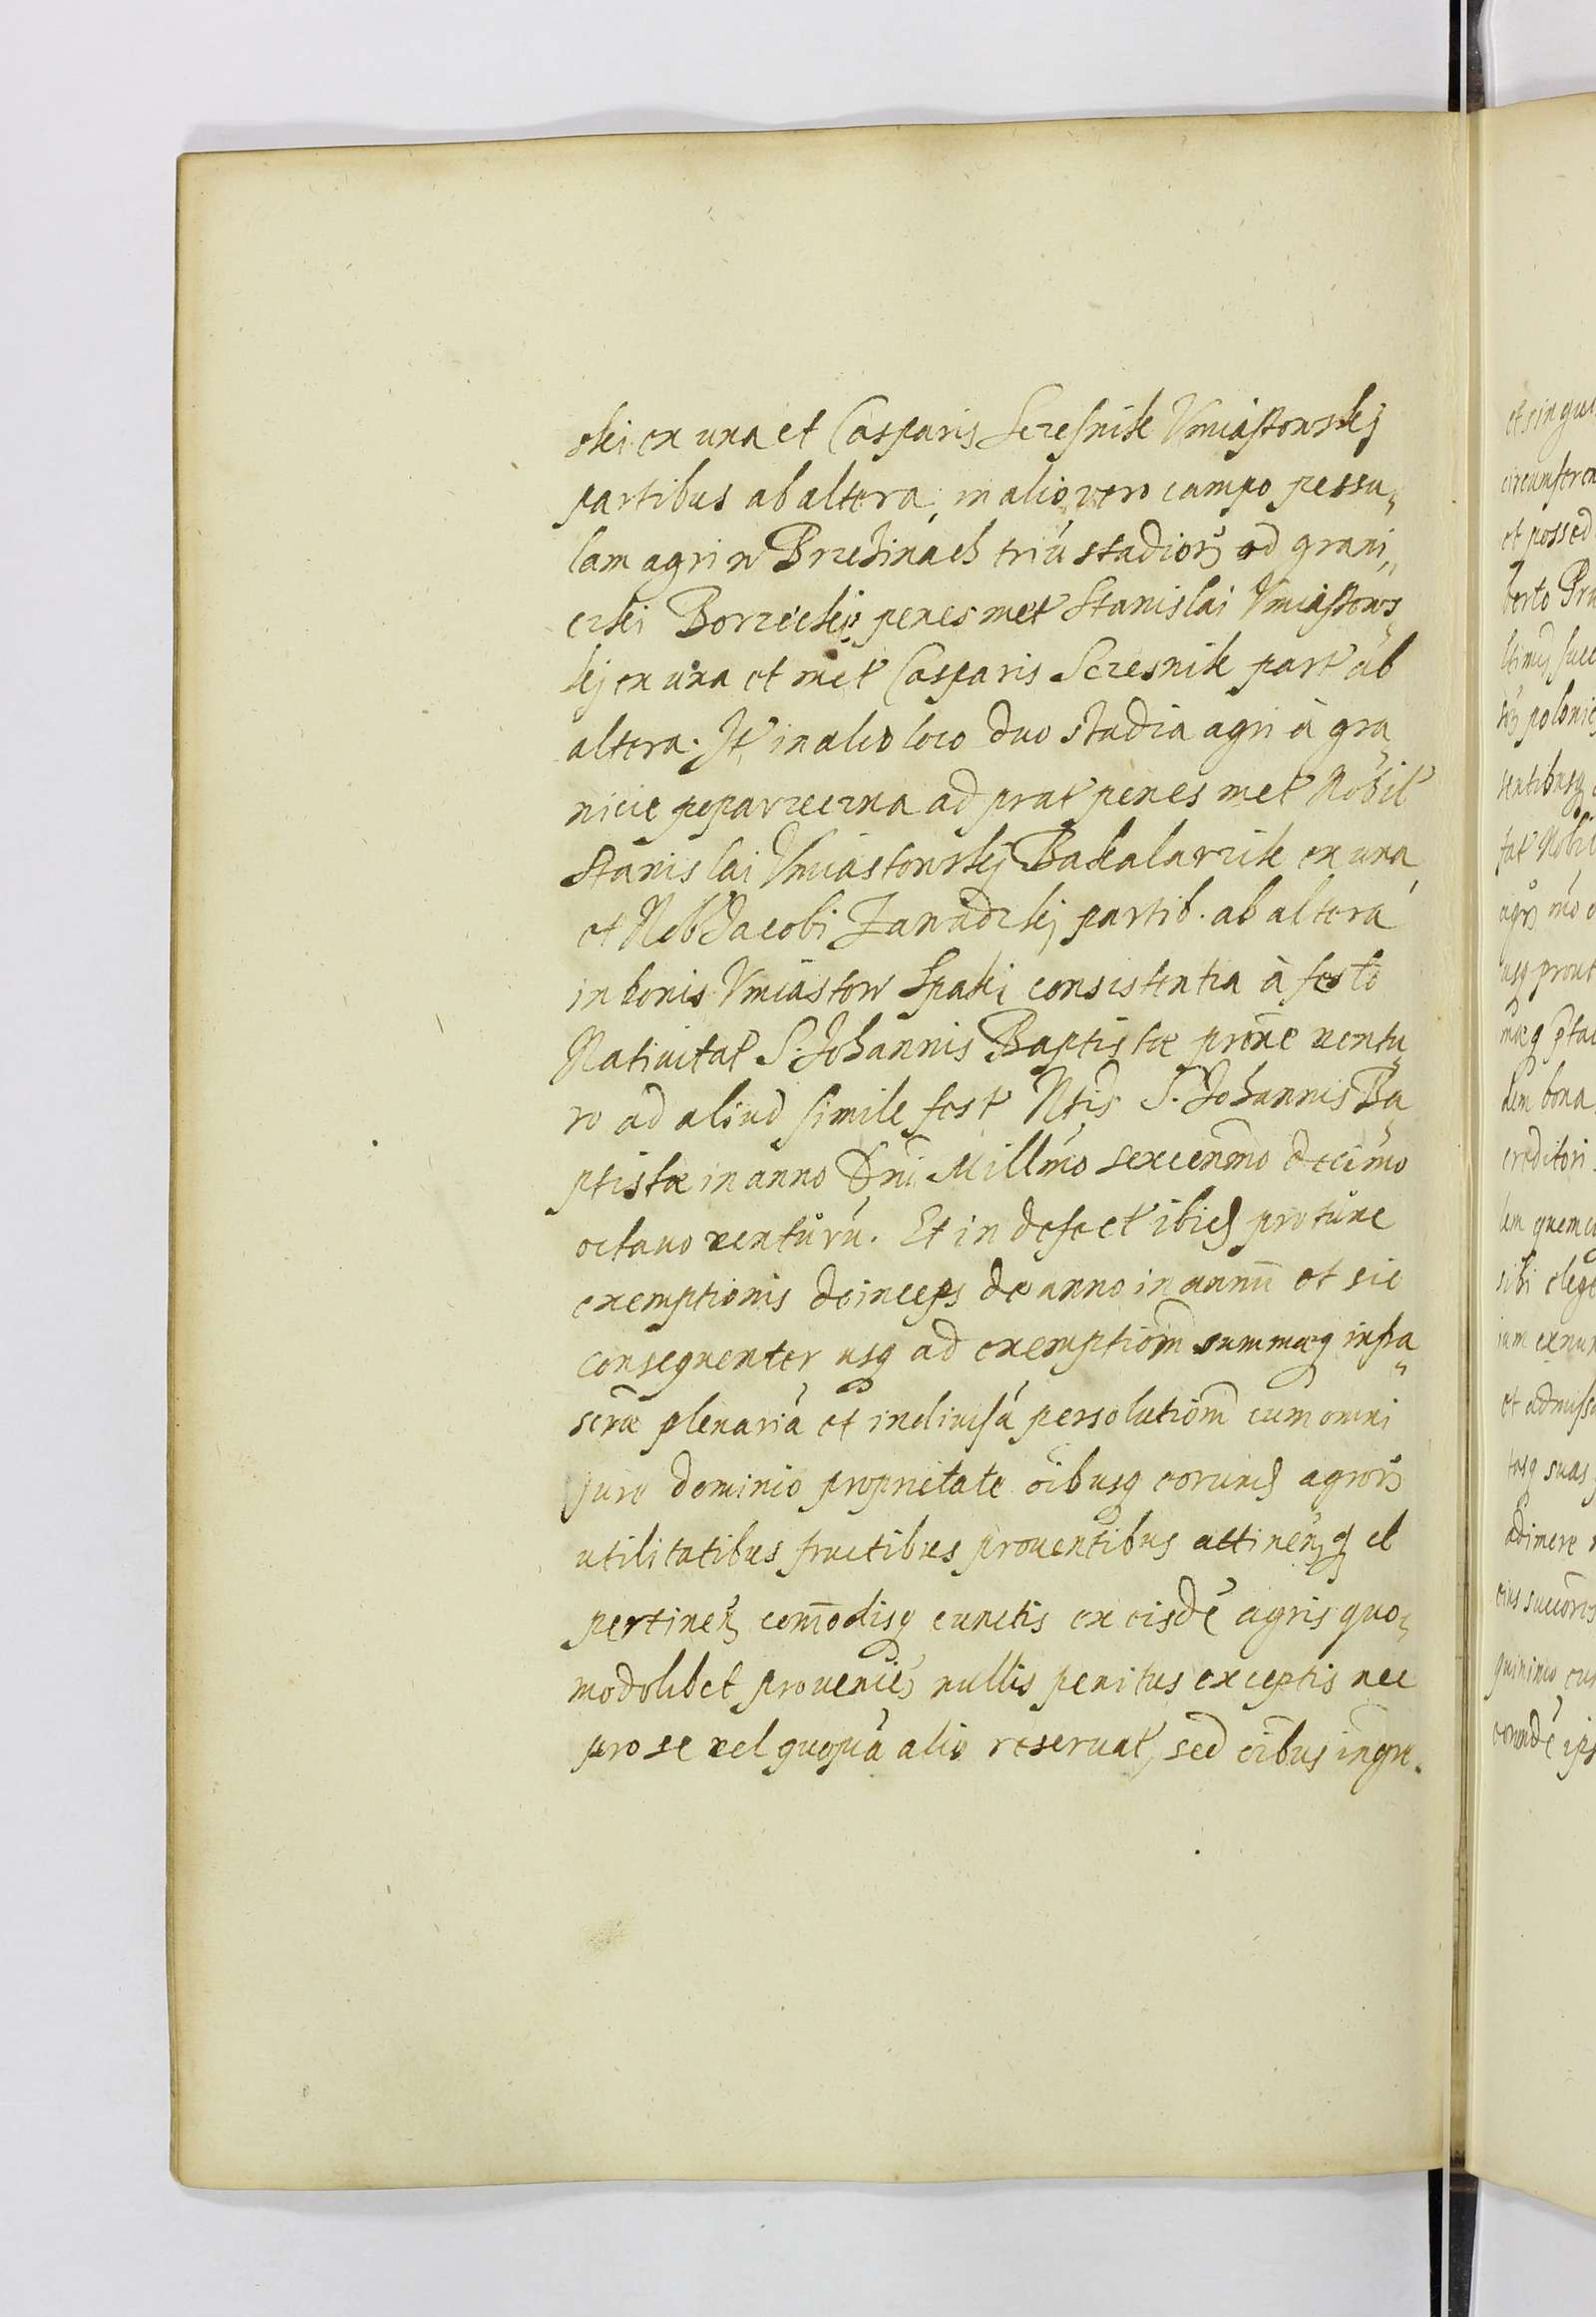 skiex una et Casparis Sczesnik Vmiastowskÿ
partibus ab altera, in alio vero campo pessu„
lam agri w Brzezinách triũ stadiorꝫ od grani„
czki Borzeckÿ penes met Stanislai Vmiastows„
kÿ ex una et met Casparis Sczesnik part ab
altera. It in alio loco duo stadia agri à gra„
nicie poparzeczna ad prat penes met Nobil
Stanislai Vmiastowskÿ Bakalarzik ex una
et Nob Jacobi Zawadzkÿ partib. ab altera
in bonis Vmiastow Spaki consistentia à festo
Natiuitat S. Johannis Baptistæ proxe ventu„
ro ad aliud simile fest Ntis S. Johannis Ba„
ptistæ in anno Dni Millmo sexcenmo decimo
octauo venturũ. Et in defect ibidꝫ pro tunc
exemptionis deinceps de anno in annũ et sic
consequenter usq ad exemptiom summæq infra„
scræ plenariã et indiuisã persolutiom cum omni
jure dominio proprietate oibusq eorundꝫ agrorꝫ
utilitatibus fructibus prouentibus attinenꝫq et
pertinenꝫ comodisq cunctis ex eisdẽ agris quo„
modolibet prouenieꝫ nullis penitus exceptis nec
pro se vel quopiã alio reseruat, sed oibus in gne.
et singul
circumferen
et possed
berto Gra
ltimÿ succ
polonic
tentibusq
tat Nobil
agrꝫ
usq prout
mæq
dem bona
creditori
lem quemcu
sibi elege
iam exnun
et admisse
tasq suas
adimere
eius succors
quinimo cum
eorundẽ ips